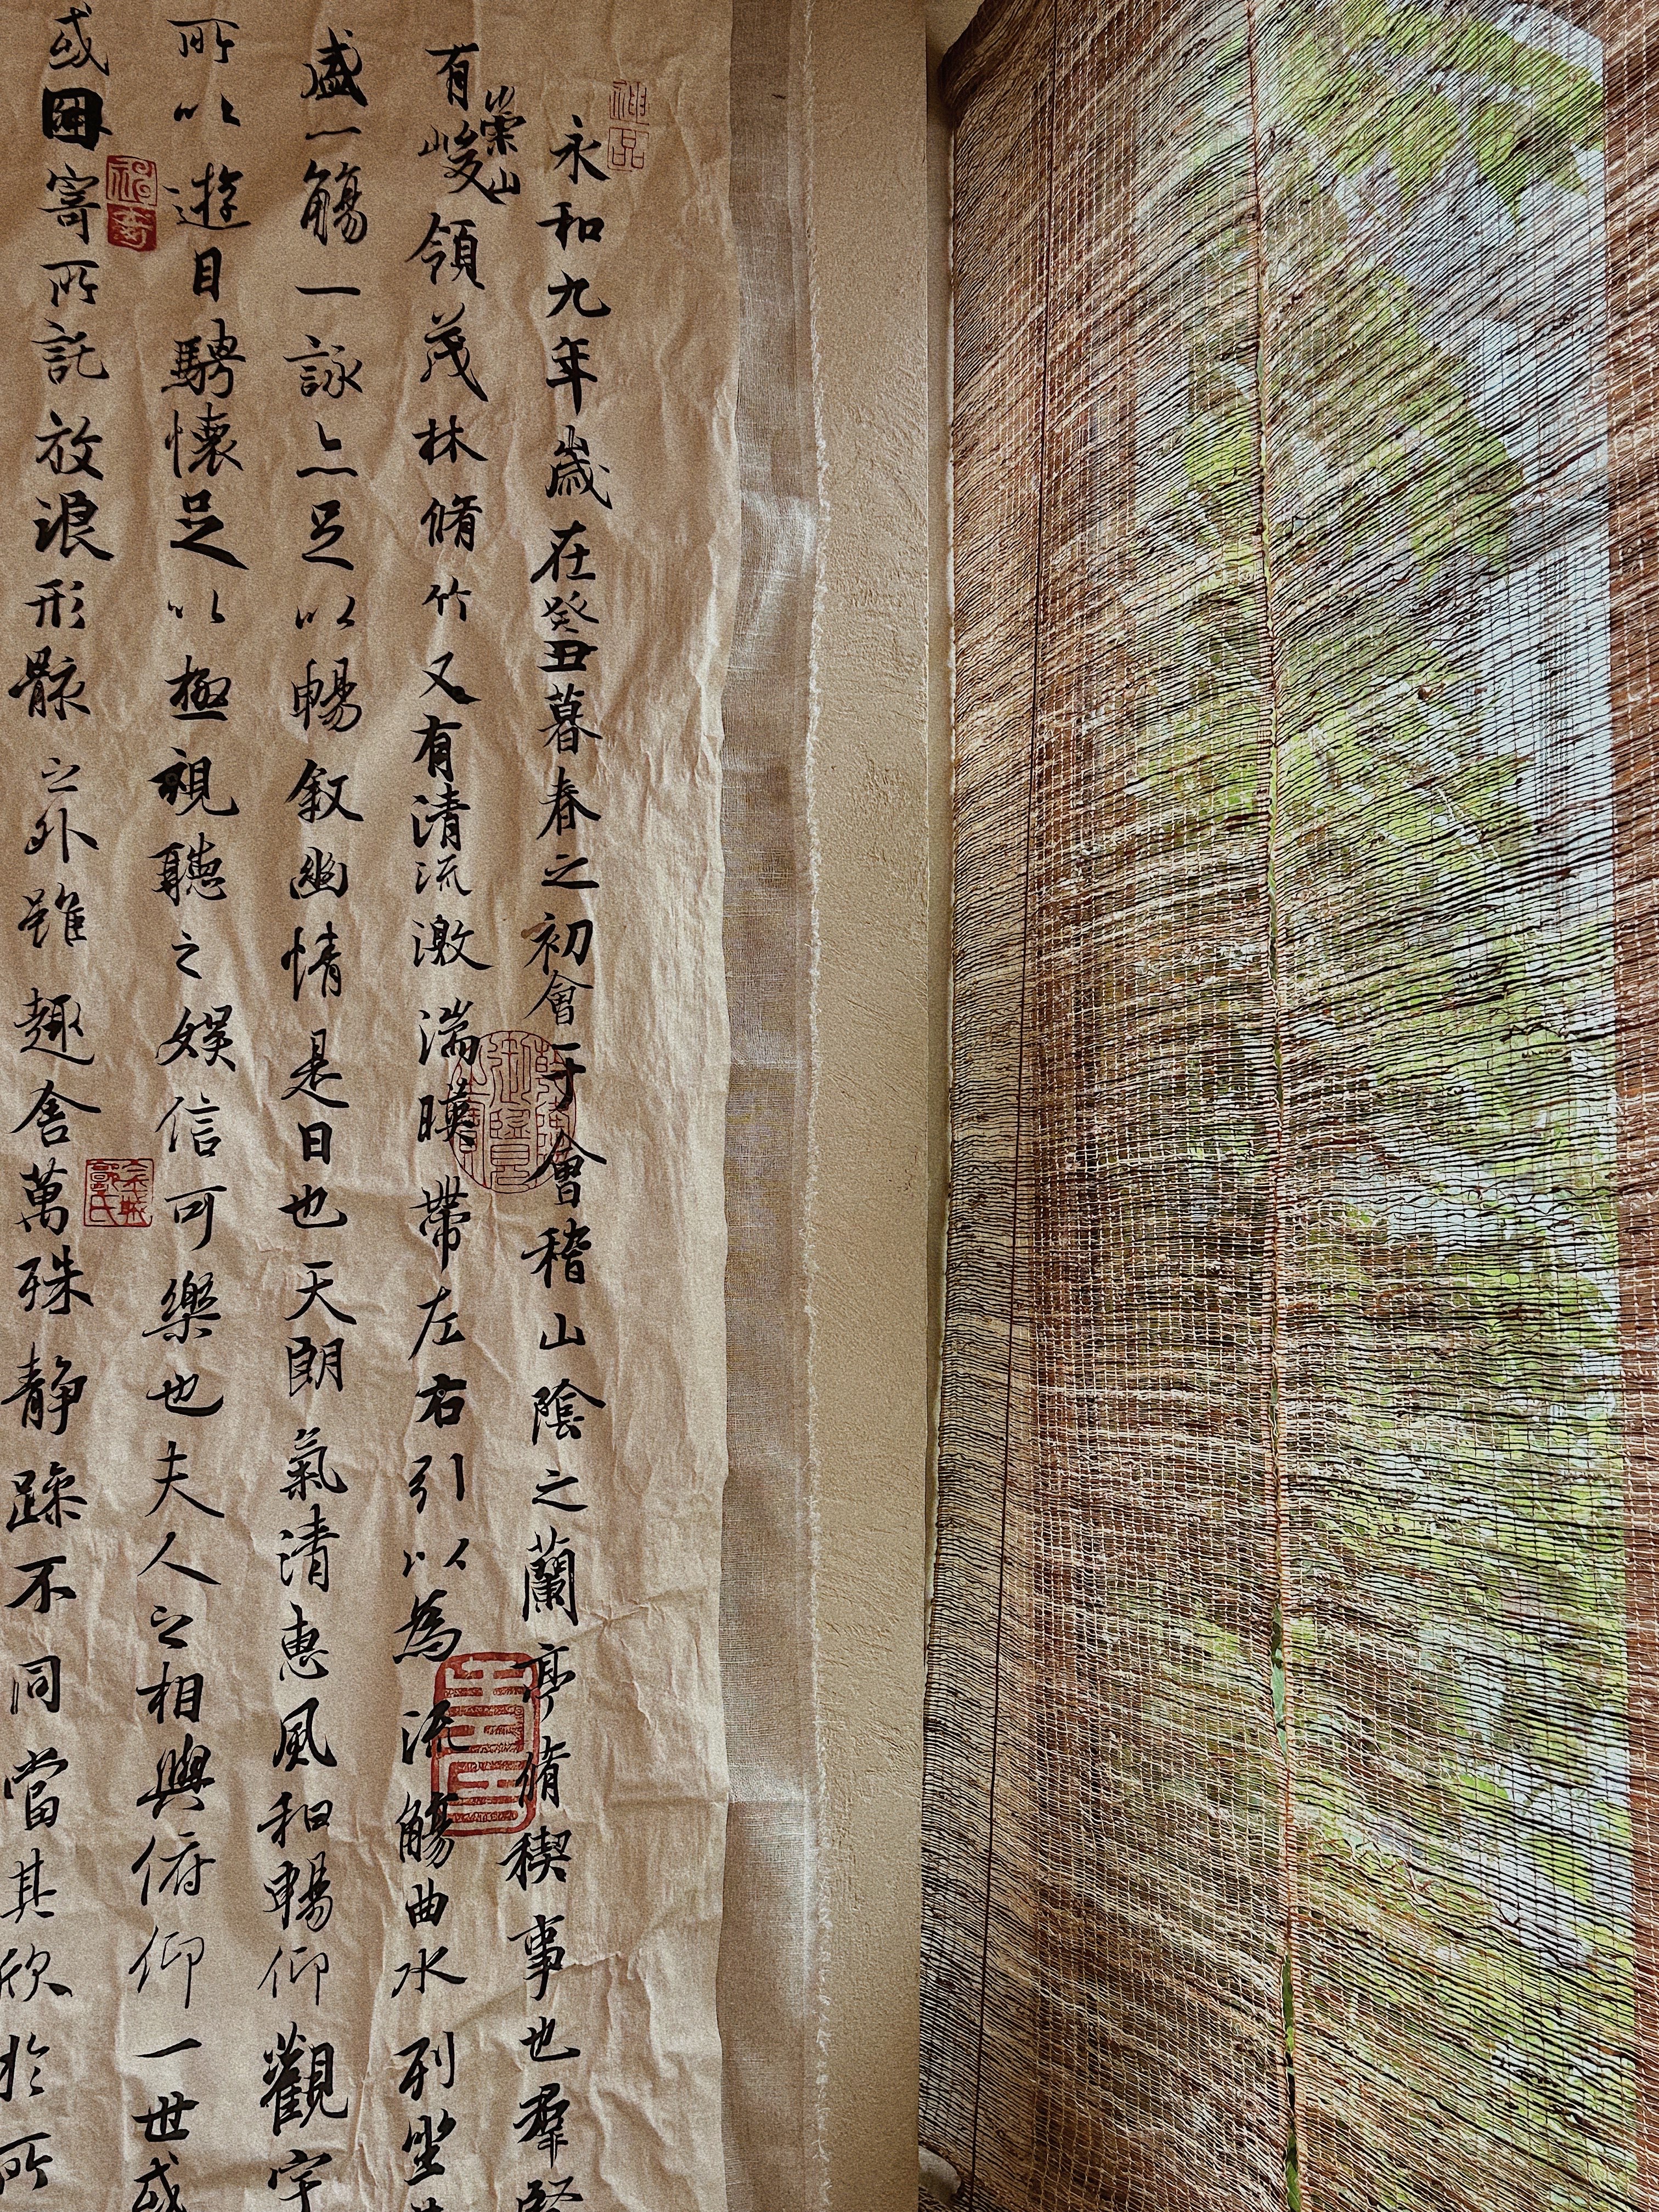 永和九年歲在癸丑暮春之初會于會稽山陰之蘭亭脩稧事也羣賢
有崇山峻領茂林脩竹又有清流激湍暎帶左右引以為流觴曲水列坐其
盛一觴一詠亦足以暢敘幽情是日也天朗氣清惠風和暢仰觀宇
所以遊目騁懷足以極視聽之娛信可樂也夫人之相與俯仰一世或
或因寄所託放浪形骸之外雖趣舍萬殊静躁不同當其欣於所
神品